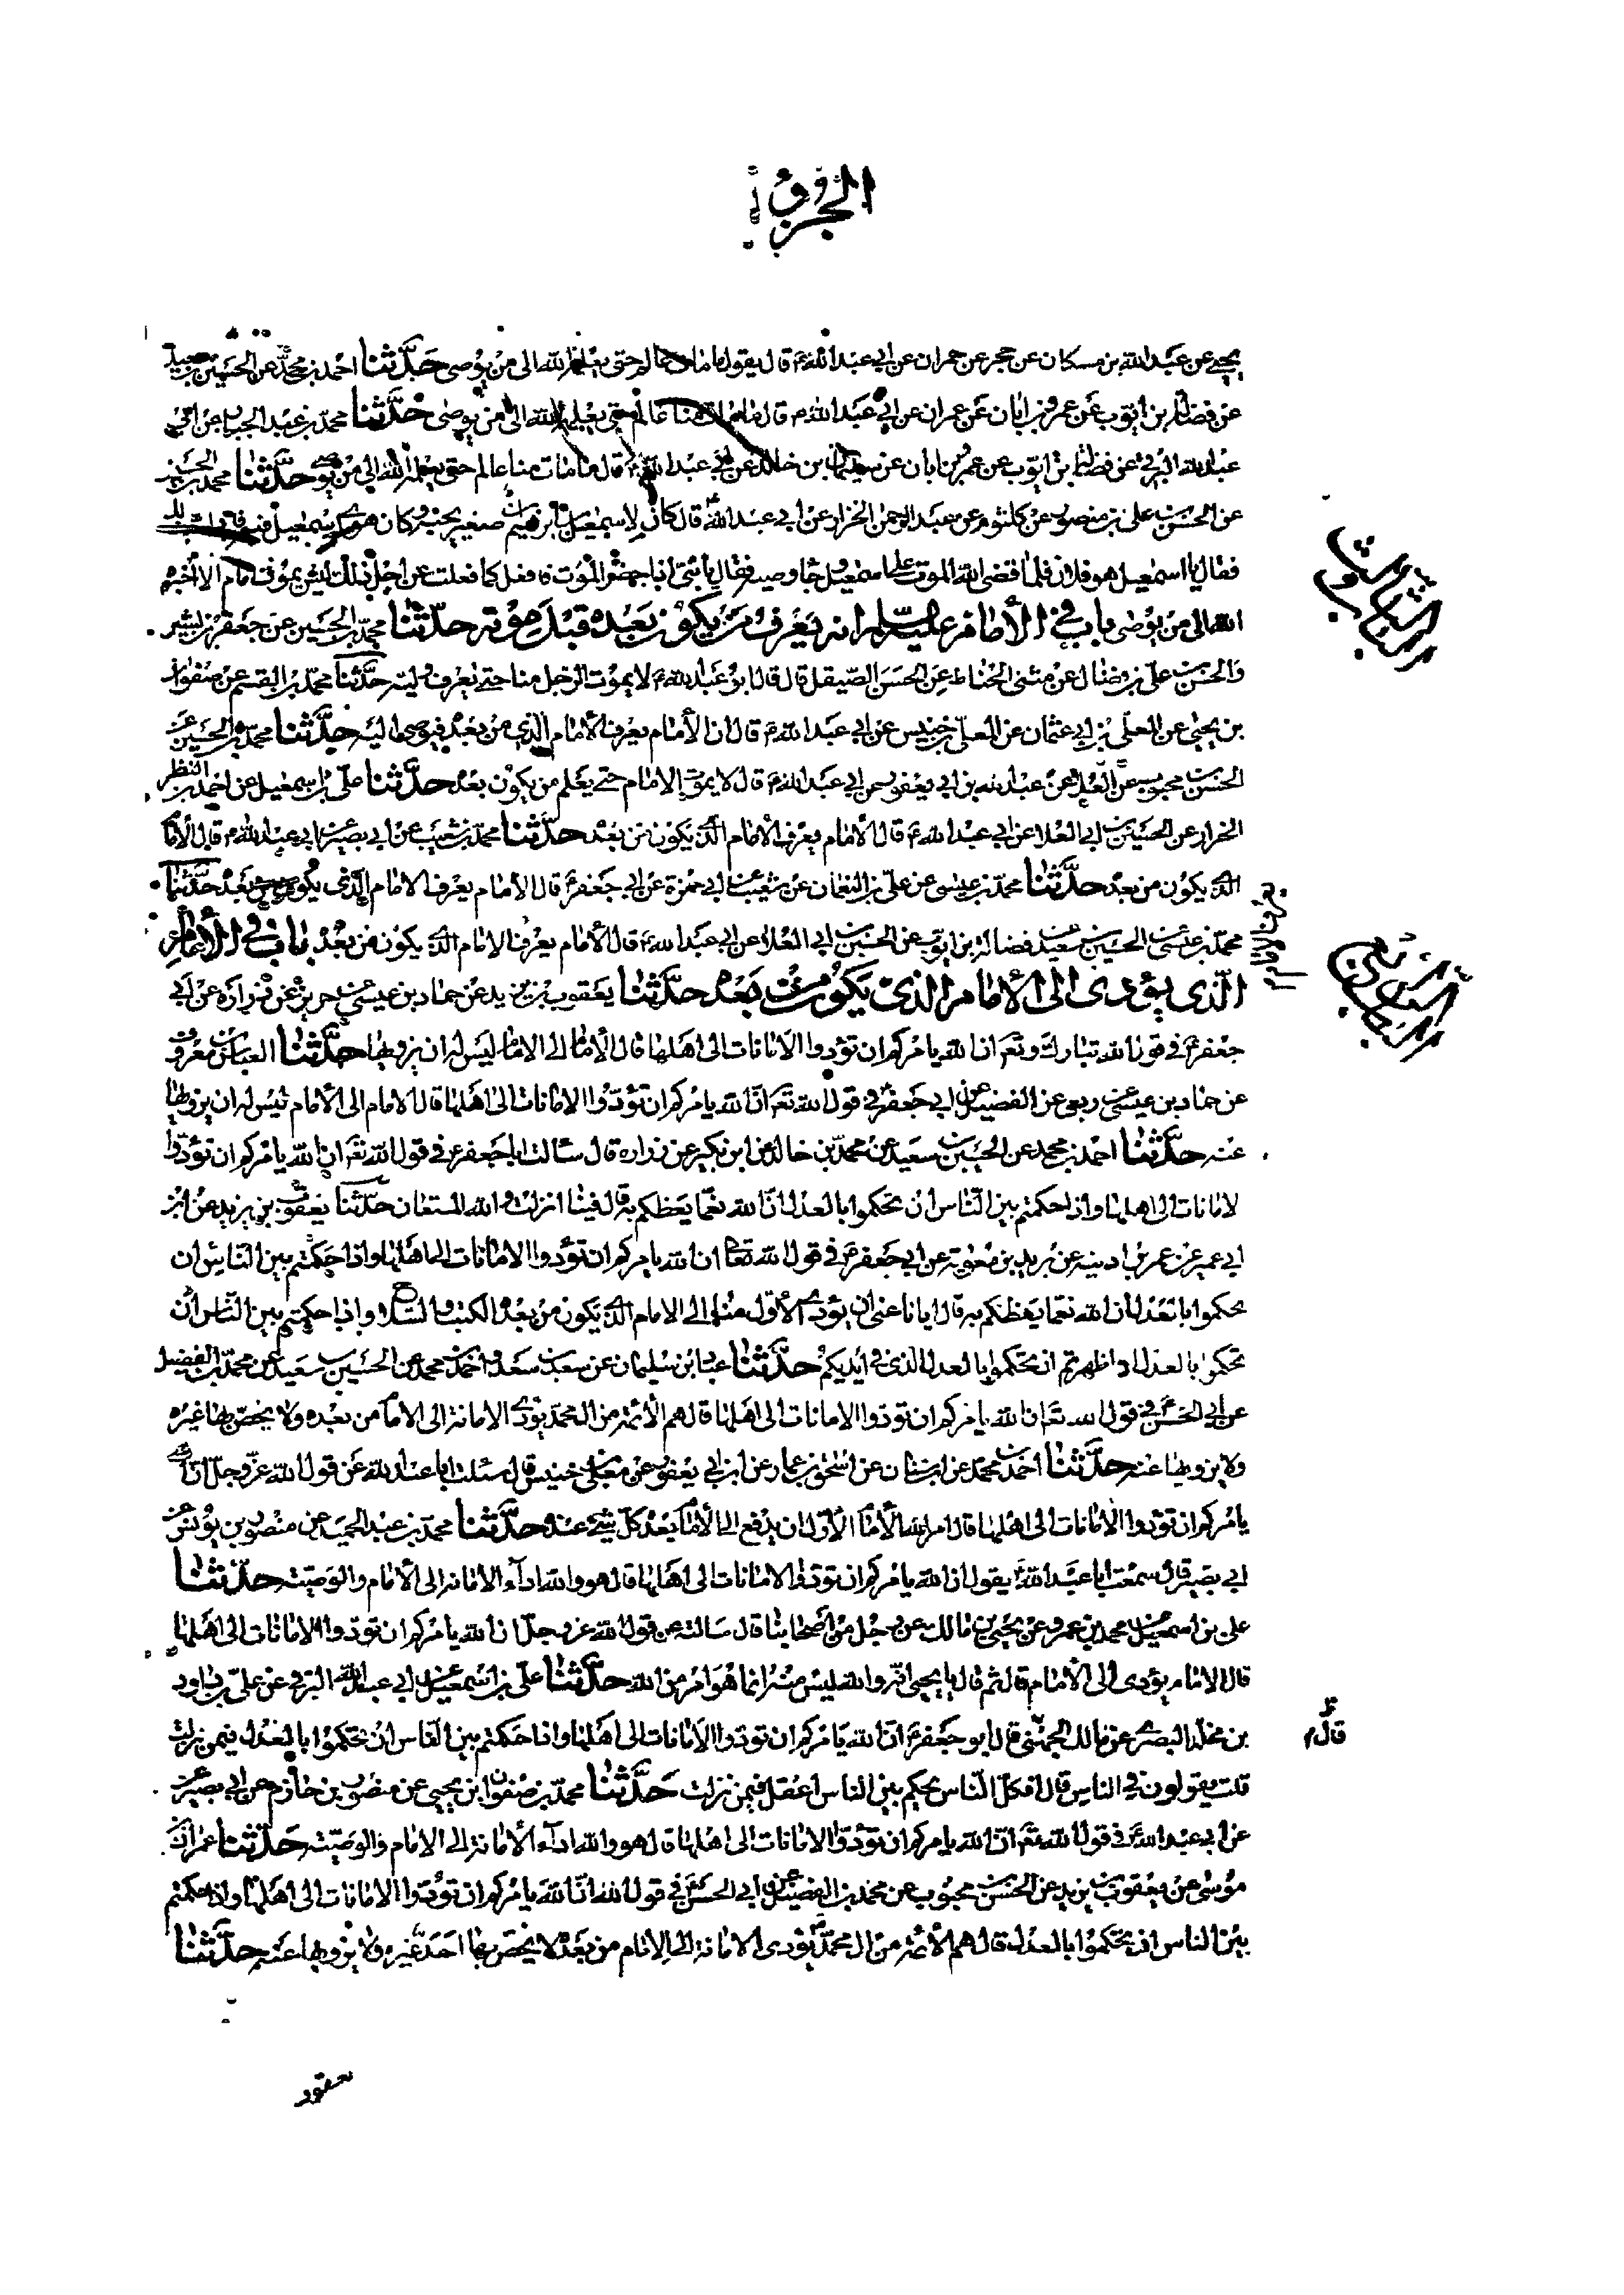 الجزو
يحيى عن عبد الله بن مسكان عن حجر عن حمران عن ابي عبد الله ع قال يقول ما مات عالم حتى يعلمه الله الى من يوصى حدّثنا احمد بن محمد عن الحسين بن سعيد
عن فضالة بن ايّوب عن عمرو بن ابان عن حمران عن ابي عبد الله ع قال مامات منا عالم حتى يعلمه الله الى من يوصى حدّثنا محمد بن عبد الجبار عن ابي
عبد الله البرقي عن فضالة بن ايّوب عن عمرو بن ابان عن سليمان بن خالد عن ابي عبد الله ع قال ما مات منا عالم حتى يعلمه الله الى من يوصى حدّثنا محمد بن الحسين
عن الحسن بن علي بن منصور عن كلثوم عن عبد الرحمن الخزاز عن ابي عبد الله ع قال كان لاسمعيل بن ابرهيم ابن صغير يحبه وكان هوى اسمعيل فيه
فقال يا اسمعيل هو فلان فلما قضى الله الموت على اسمعيل وجا وصيه فقال يا بنيّ اذا حضر الموت فافعل كما فعلت فمن اجل ذلك ليس يموت امام الا اخبره
الله الى من يوصى باب في الأمام عليه السلام انه يعرف من يكون بعده قبل موته حدّثنا محمد بن الحسين عن جعفر بن بشير
والحسن بن علي بن فضال عن مثنى الحناط عن الحسن الصيقل قال قال ابو عبد الله ع لا يموت الرجل منا حتى يعرف وليه حدّثنا محمد بن القسم عن صفوان
بن يحيى عن المعلى بن ابي عثمان عن المعلى بن خنيس عن ابي عبد الله ع قال ان الأمام يعرف الأمام الذي من بعده فيوصى اليه حدّثنا محمد بن الحسين عن
الحسن بن محبوب عن العلا عن عبد الله بن ابي يعفور عن ابي عبد الله ع قال لا يموت الإمام حتى يعلم من يكون بعده حدّثنا علي بن اسمعيل عن احمد بن النظر
الخزاز عن الحسين بن ابي العلا عن ابي عبد الله ع قال الأمام يعرف الأمام الذي يكون من بعده حدّثنا محمد بن شعيب عن ابي بصير عن ابي عبد الله ع قال الأمام
الذي يكون من بعده حدّثنا محمد بن عيسى عن علي بن النعمان عن شعيب عن ابي حمزة عن ابي جعفر ع قال الأمام يعرف الامام الذي يكون من بعده حدّثنا
محمد بن عيسى عن الحسين بن سعيد عن فضالة بن ايوب عن الحسين بن ابي العلا عن ابي عبد الله ع قال الأمام يعرف الإمام الذي يكون من بعده باب في الأمام
الّذى يؤدى الى الأمام الذى يكون من بعده حدّثنا يعقوب بن يزيد عن حماد بن عيسى عن حريز عن زرارة عن ابي
جعفر ع في قول الله تبارك وتع ان الله يامركم ان تؤدوا الامانات الى اهلها قال الأمام الى الامام ليس له ان يزويها حدّثنا العباس بن معروف
عن حماد بن عيسى عن ربعي عن الفضيل عن ابي جعفر ع في قول الله تع انّ الله يامركم ان تؤدّوا الامانات الى اهلها قال الامام الى الأمام ليس له ان يزويها
عنه حدّثنا احمد بن محمد عن الحسين بن سعيد عن محمد بن خالد عن ابن بكير عن زراره قال سالت ابا جعفر ع في قول الله تع ان الله يامركم ان تؤدّوا
لامانات الى اهلها واذا حكمتم بين النّاس ان تحكموا بالعدل انّ الله نعمّا يعظكم به قال فينا انزلت والله المستعان حدّثنا يعقوب بن يزيد عن ابن
ابي عمير عن عمر بن ادينه عن بريد بن معوية عن ابي جعفر ع في قول الله تعا ان الله يامركم ان تؤدوا الامانات الى اهلها واذا حكمتم بين الناس ان
تحكموا بالعدل ان الله نعمّا يعظكم به قال ايانا عنى ان يؤدى الأول منا الى الامام الذي يكون من بعده الكتب والسلاح واذا حكمتم بين النّاس ان
تحكموا بالعدل اذا ظهرتم ان تحكموا بالعدل الذى في ايديكم حدّثنا عباد بن سليمان عن سعد بن سعد واحمد بن محمد عن الحسين بن سعيد عن محمد بن الفضيل
عن ابي الحسن ع في قول الله تع ان الله يامركم ان تودوا الامانات الى اهلها قال هم الأئمة من ال محمد يؤدى الامانة الى الامام من بعده ولا يخصّ بها غيره
ولا يزويها عنه حدّثنا احمد بن محمد عن ابن سنان عن اسحق بن عمار عن ابن ابي يعفور عن معلى بن خنيس قال سئلت ابا عبد الله عن قول الله عزّ وجل ان الله
يامركم ان تؤدوا الامانات الى اهلها قال امر الله الأمام الأوّل ان يدفع الى الأمام بعده كلّ شيء عنده حدّثنا محمد بن عبد الحميد عن منصور بن يونس عن
ابي بصير قال سمعت ابا عبد الله ع يقول ان الله يامركم ان تودوا الامانات الى اهلها قال هو والله اداء الامانة الى الأمام والوصيّة حدّثنا
علي بن اسمعيل عن محمد بن عمرو عن يحيى بن مالك عن رجل من أصحابنا قال سالته عن قول الله عز وجل ان الله يامركم ان تؤدّوا الامانات الى اهلها
قال الامام يؤدى الى الأمام قال ثم قال يا يحيى انّه والله ليس منه انما هو امر من الله حدّثنا علي بن اسمعيل عن ابي عبد الله البرقي عن علي بن داود
بن مخلد البصرى عن مالك الجهني قال قال ابو جعفر ع انّ الله يامركم ان تودوا الامانات الى اهلها واذا حكمتم بين النّاس ان تحكموا بالعدل فيمن نزلت
قلت يقولون في الناس قال افكلّ النّاس يحكم بين الناس اعقل فيمن نزلت حدّثنا محمد بن صفوان بن يحيى عن منصور بن حازم عن ابي بصير عن
عن ابي عبد الله ع في قول الله تع انّ الله يامركم ان تؤدّوا الامانات الى اهلها قال هو والله اداء الأمانة الى الامام والوصيّة حدّثنا عمران بن
موسى عن يعقوب بن يزيد عن الحسن بن محبوب عن محمد بن الفضيل عن ابي الحسن ع في قول الله انّ الله يامركم ان تؤدّوا الامانات الى اهلها واذا حكمتم
بين الناس ان تحكموا بالعدل قال هم الأئمة من ال محمد يؤدى الامانة الى الإمام من بعده لا يخصّ بها احدا غيره ولا يزويها عنه حدّثنا
قال م
يعقوب